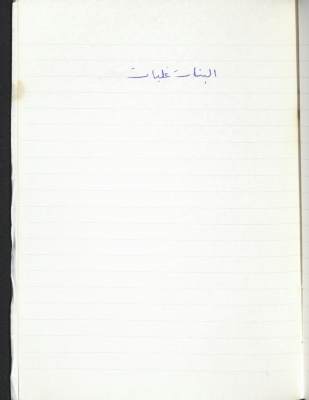 البنات غلبات